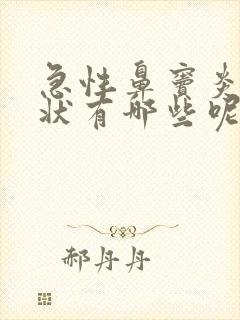 急性鼻窦炎
状有哪些呢
郝丹丹